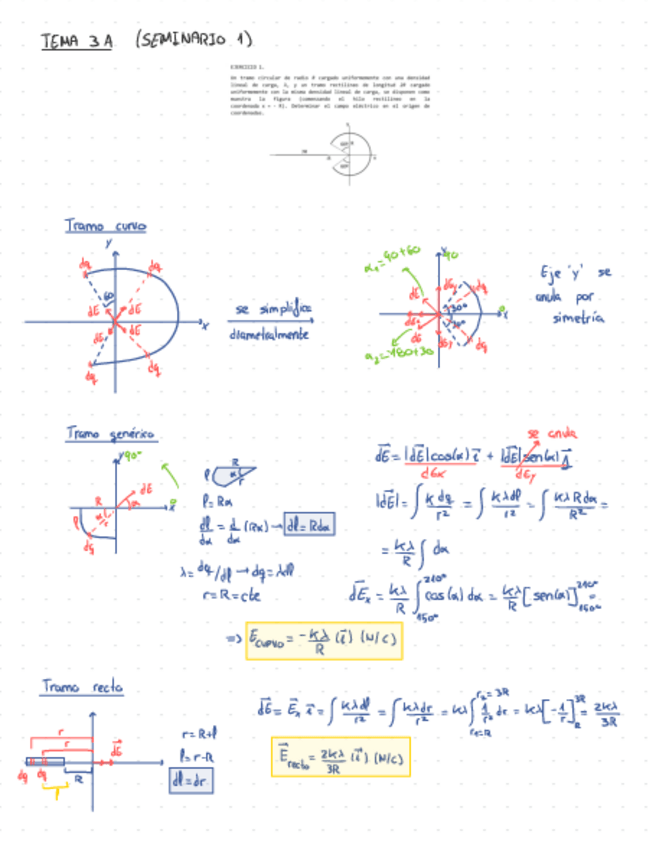 TEMA 3A (SEMINARIO 1)
EJERCICIO 1.
Un tramo circular de radio R cargado uniformemente con una densidad
lineal de carga, λ, y un tramo rectilíneo de longitud 2R cargado
uniformemente con la misma densidad lineal de carga, se disponen como
muestra la figura (comenzando el hilo rectilíneo en la
coordenada x = - R). Determinar el campo eléctrico en el origen de
coordenadas.
Tramo curvo
y
dq
dq
60
dE
dE
dE
dE
x
dq
dq
se simplifica
diametralmente
α₁=90+60
90
dE
dEy
dq
30°
30°
0
x
dE
dEy
dq
α₂=180+30
Eje 'y' se
anula por
simetría
Tramo genérico
y 90°
dE
R
α
α
r
l
dq
0
x
R
l
α
r
l=Rα
dl/dα = d/dα (Rα) → dl=Rdα
λ=dq/dl → dq=λdl
r=R=cte
se anula
dE = |dE|cos(α) i + |dE|sen(α) j
dEx
dEy
|dE| = ∫ k dq/r² = ∫ kλdl/r² = ∫ kλRdα/R² =
= kλ/R ∫ dα
dEx = kλ/R ∫ 150° 210° cos(α) dα = kλ/R [sen(α)] 150° 210° =
=> E curvo = -kλ/R (i) (N/C)
Tramo recto
r
r
dE
dq
dq
R
l
r=R+l
l=r-R
dl=dr
dE = Ex i = ∫ kλdl/r² = ∫ kλdr/r² = kλ ∫ r₁=R r₂=3R 1/r² dr = kλ [-1/r] R 3R = 2kλ/3R
E recto = 2kλ/3R (i) (N/C)